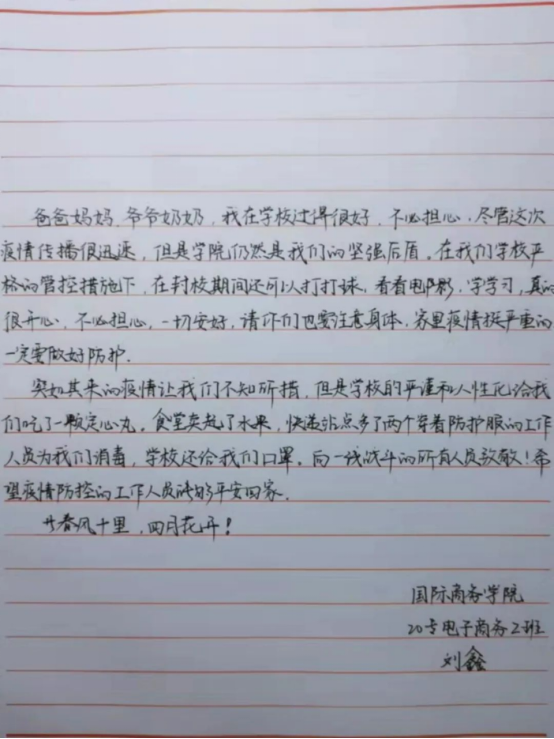 爸爸妈妈,爷爷奶奶,我在学校过得很好,不必担心,尽管这次
疫情传播很迅速,但是学院仍然是我们的坚强后盾。在我们学校严
格的管控措施下,在封校期间还可以打打球,看看电影,学学习,真的
很开心,不必担心,一切安好,请你们也要注意身体,家里疫情挺严重的
一定要做好防护.
突如其来的疫情让我们不知所措,但是学校的严谨和人性化给我
们吃了一颗定心丸,食堂卖起了水果,快递站点多了两个穿着防护服的工作
人员为我们消毒,学校还给我们口罩。向一线战斗的所有人员致敬!希
望疫情防控的工作人员能够平安回家.
春风十里,四月花开!
国际商务学院
20专电子商务2班
刘鑫